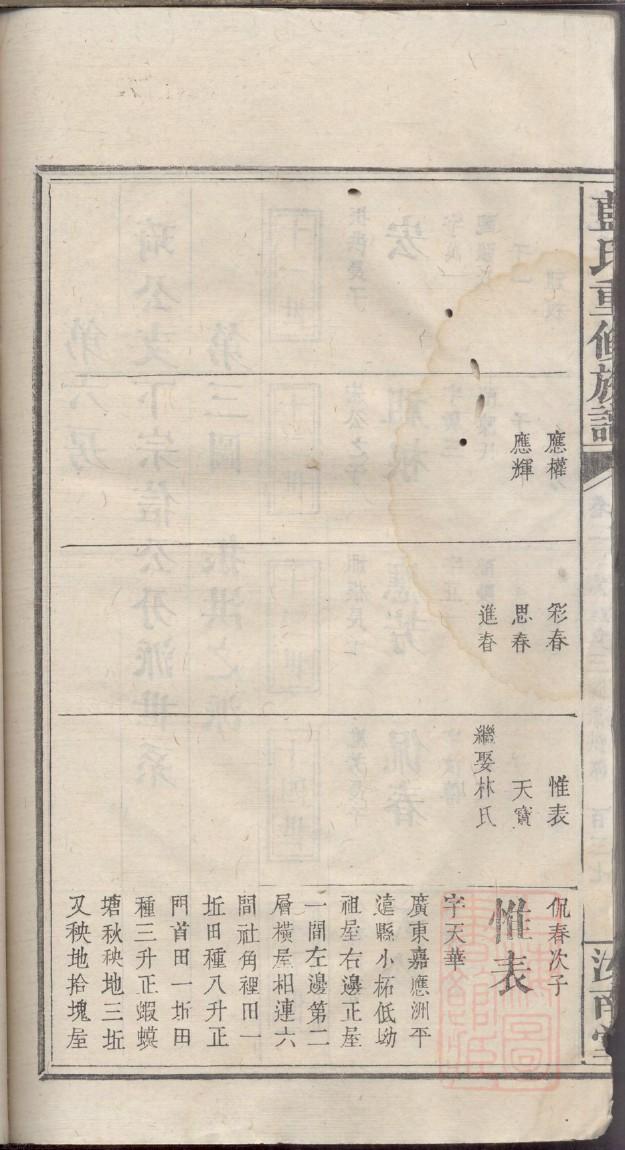 藍氏重修族譜
汝南堂
應權
應輝
彩春
思春
進春
惟表
天寳
繼娶林氏
侃春次子
惟表
字天華
廣東嘉應洲平
遠縣小柘低坳
祖屋右邊正屋
一間左邊第二
層橫屋相連六
間社角裡田一
坵田種八升正
門首田一坵田
種三升正蝦蟆
塘秋秧地三坵
又秧地拾塊屋